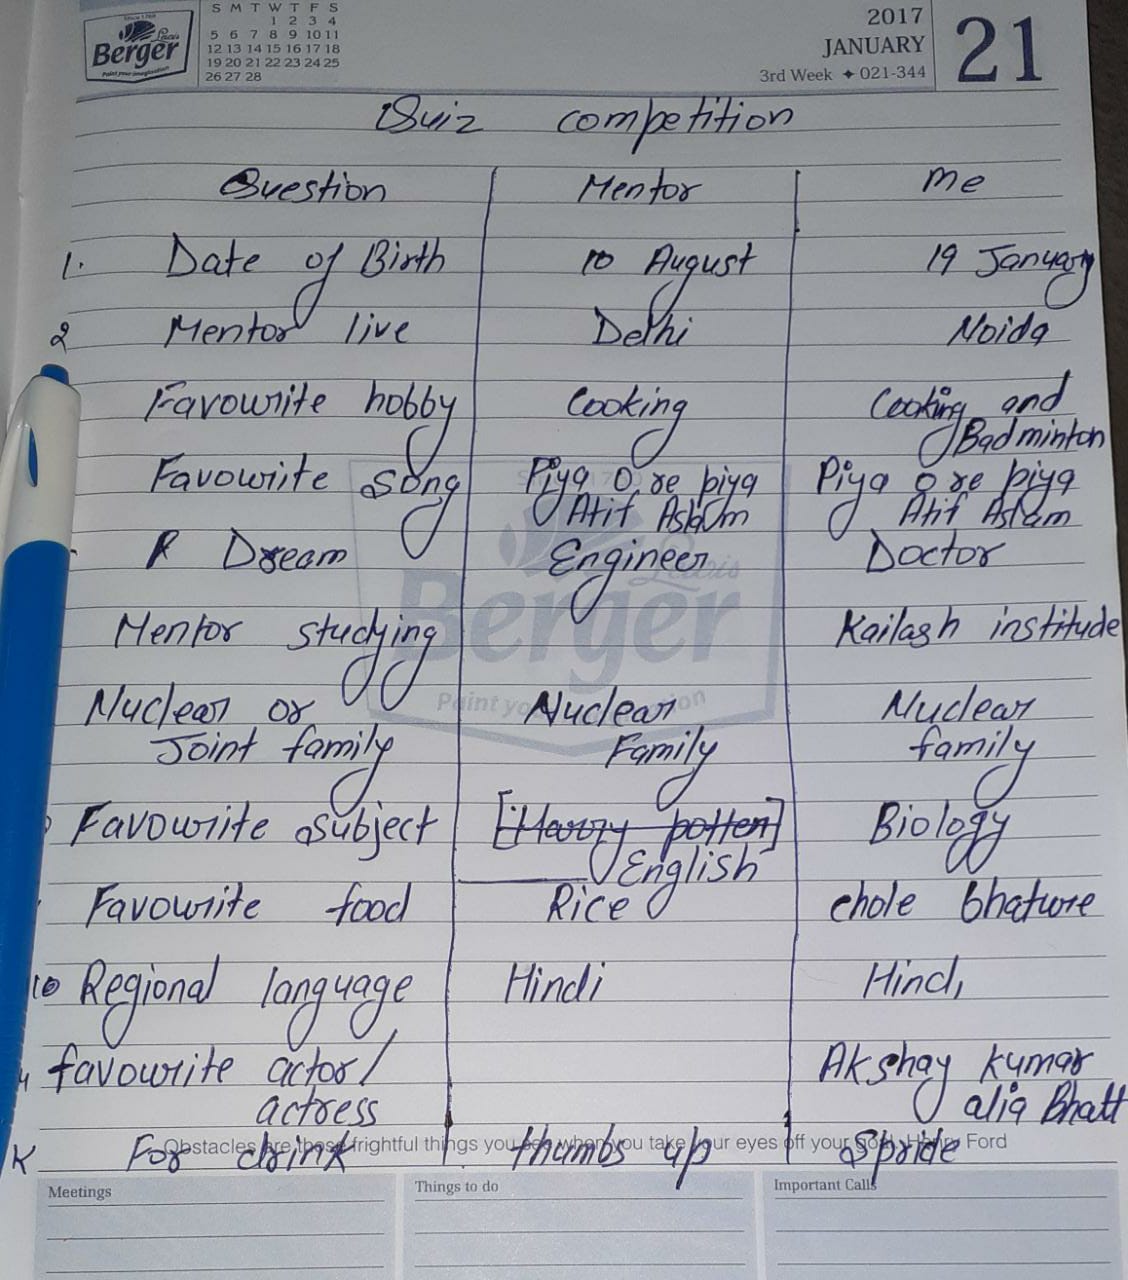 Since 1760
Lewis
Berger
Paint your imagination
S M T W T F S
1 2 3 4
5 6 7 8 9 10 11
12 13 14 15 16 17 18
19 20 21 22 23 24 25
26 27 28
2017
JANUARY
3rd Week ✦ 021-344
21
Quiz competition
Question Mentor me
1. Date of Birth 10 August 19 January
2 Mentor live Delhi Noida
Favourite hobby Cooking Cooking and
Badminton
Favourite song Piya O re piya Piya o re piya
Atif Aslam Atif Aslam
Dream Engineer Doctor
Mentor studying Kailash institude
Nuclear or Nuclear Nuclear
Joint family Family family
Favourite subject [Harry potter] Biology
English
Favourite food Rice chole bhature
10 Regional language Hindi Hindi
favourite actor/ Akshay kumar
actress alia Bhatt
For drink thumbs up Spride
Lewis
Berger
Obstacles are those frightful things you see when you take your eyes off your goal. Henry Ford
Meetings Things to do Important Calls